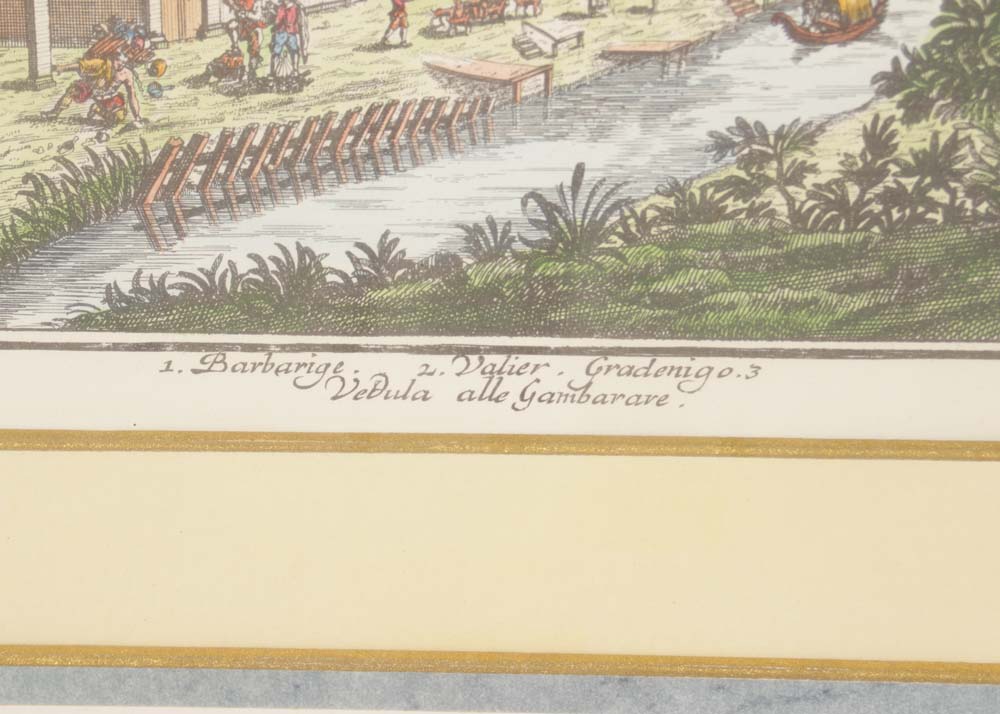 1. Barbarige. 2. Valier. Gradenigo. 3
Vedula alle Gambarare.